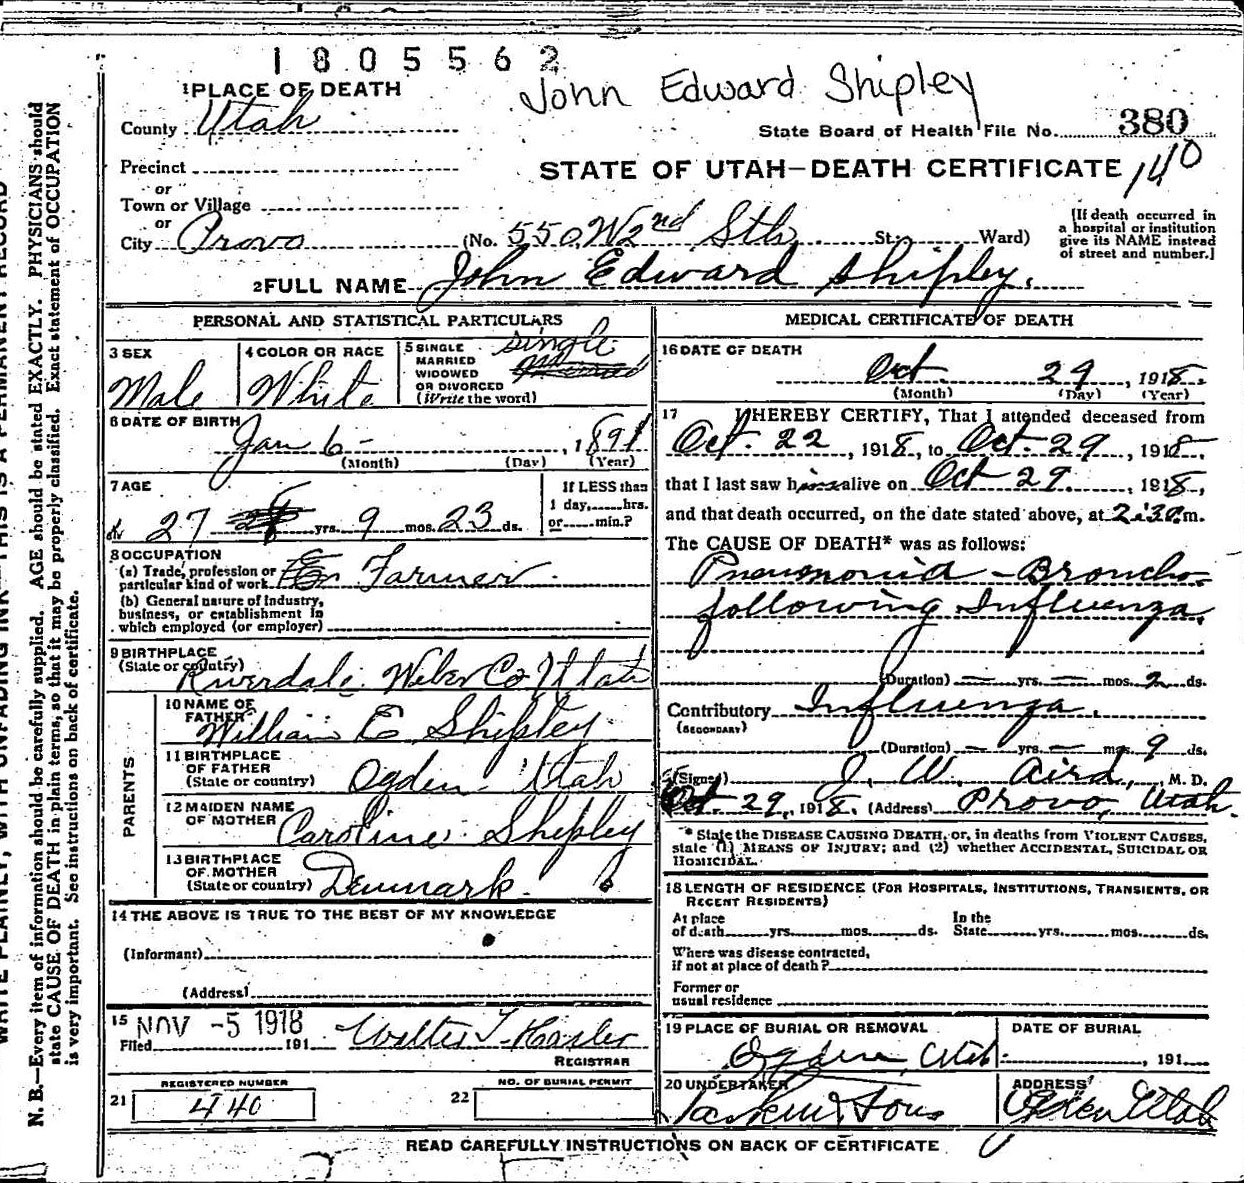 1805562
John Edward Shipley
1 PLACE OF DEATH
County Utah
State Board of Health File No. 380
Precinct
STATE OF UTAH—DEATH CERTIFICATE 140
or
Town or Village
or
City Provo (No. 550 W 2nd Sth St. Ward)
[If death occurred in a hospital or institution give its NAME instead of street and number.]
2 FULL NAME John Edward Shipley.
PERSONAL AND STATISTICAL PARTICULARS
3 SEX
Male
4 COLOR OR RACE
White
5 SINGLE
MARRIED
WIDOWED
OR DIVORCED
(Write the word)
single
6 DATE OF BIRTH
Jan 6 - , 1891
(Month) (Day) (Year)
7 AGE
27 yrs. 9 mos. 23 ds.
If LESS than
1 day, hrs.
or min.?
8 OCCUPATION
(a) Trade, profession or
particular kind of work Farmer.
(b) General nature of Industry,
business, or establishment in
which employed (or employer)
9 BIRTHPLACE
(State or country) Riverdale Weber Co Utah
PARENTS
10 NAME OF
FATHER William E Shipley
11 BIRTHPLACE
OF FATHER
(State or country) Ogden Utah
12 MAIDEN NAME
OF MOTHER Caroline Shipley
13 BIRTHPLACE
OF MOTHER
(State or country) Denmark.
14 THE ABOVE IS TRUE TO THE BEST OF MY KNOWLEDGE
(Informant)
(Address)
15 NOV -5 1918
Filed 191 Walter T Hasler
REGISTRAR
21 REGISTERED NUMBER
440
22 NO. OF BURIAL PERMIT
MEDICAL CERTIFICATE OF DEATH
16 DATE OF DEATH
Oct 29, 1918.
(Month) (Day) (Year)
17 I HEREBY CERTIFY, That I attended deceased from
Oct. 22, 1918, to Oct. 29, 1918,
that I last saw him alive on Oct 29, 1918,
and that death occurred, on the date stated above, at 2:30 m.
The CAUSE OF DEATH* was as follows:
Pneumonia - Broncho-
following Influenza
(Duration) — yrs. — mos. 2 ds.
Contributory Influenza.
(SECONDARY)
(Duration) — yrs. — mos. 9 ds.
(Signed) J. W. Aird, M. D.
Oct. 29, 1918. (Address) Provo, Utah.
* State the DISEASE CAUSING DEATH, or, in deaths from VIOLENT CAUSES,
state (1) MEANS OF INJURY; and (2) whether ACCIDENTAL, SUICIDAL OR
HOMICIDAL.
18 LENGTH OF RESIDENCE (FOR HOSPITALS, INSTITUTIONS, TRANSIENTS, OR
RECENT RESIDENTS)
At place
of death yrs. mos. ds.
In the
State yrs. mos. ds.
Where was disease contracted,
if not at place of death?
Former or
usual residence
19 PLACE OF BURIAL OR REMOVAL
Ogden, Utah
DATE OF BURIAL
, 191
20 UNDERTAKER
Larkin & Sons
ADDRESS
Ogden Utah
READ CAREFULLY INSTRUCTIONS ON BACK OF CERTIFICATE
N. B.—Every item of information should be carefully supplied. AGE should be stated EXACTLY. PHYSICIANS should
state CAUSE OF DEATH in plain terms, so that it may be properly classified. Exact statement of OCCUPATION
is very important. See instructions on back of certificate.